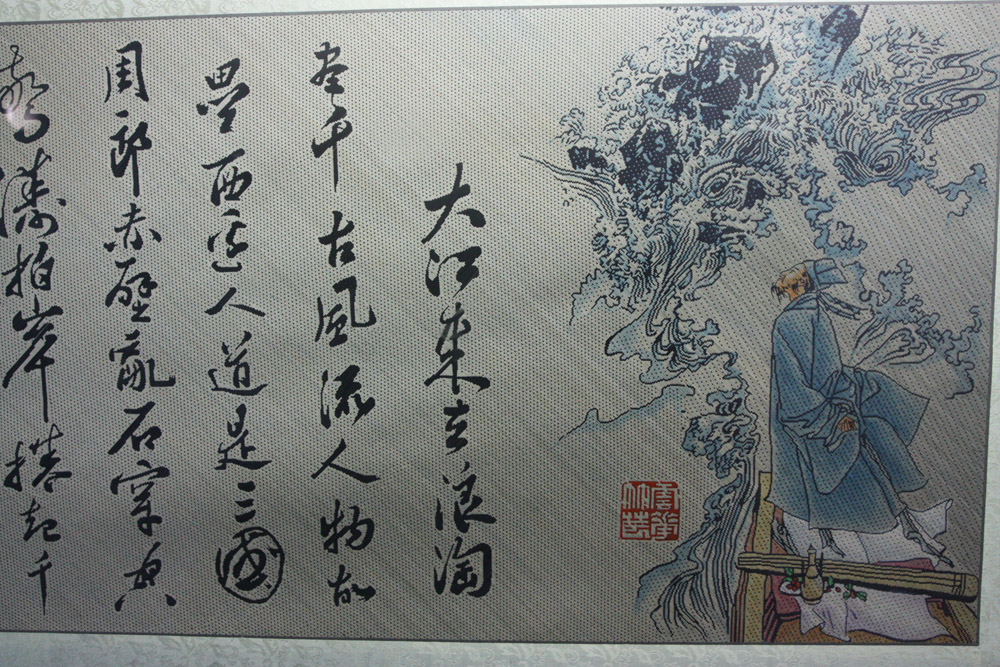 大江東去浪淘
盡千古風流人物故
壘西邊人道是三國
周郎赤壁亂石穿空
驚濤拍岸捲起千